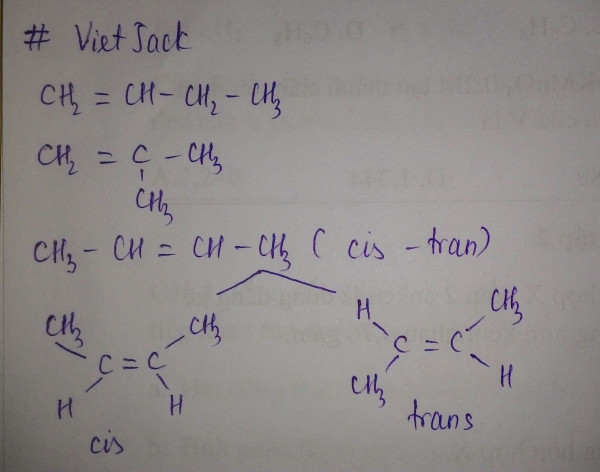 # VietJack
CH2 = CH - CH2 - CH3
CH2 = C - CH3
CH3
CH3 - CH = CH - CH3 ( cis - tran)
CH3 CH3
C = C
H H
cis
H CH3
C = C
CH3 H
trans